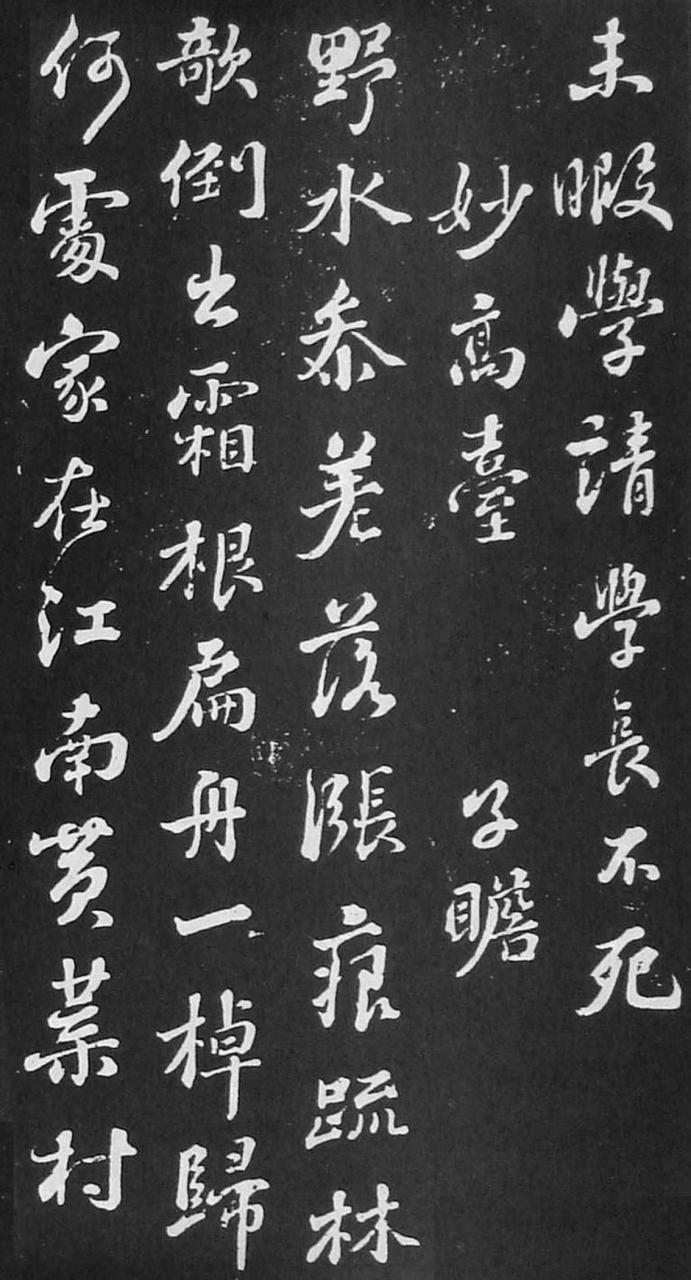 未暇學請學長不死
妙高臺 子瞻
野水叅差落漲痕踈林
欹倒出霜根扁舟一棹歸
何處家在江南黄葉村